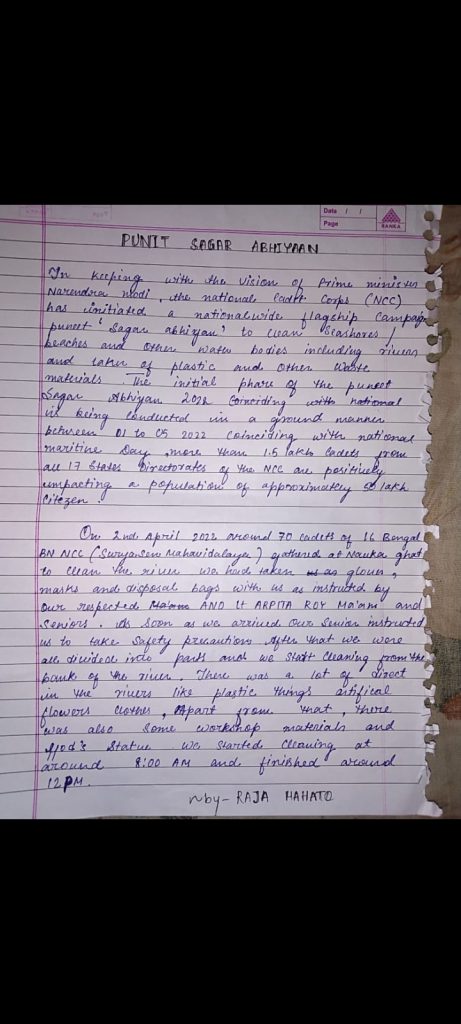 Date / /
Page
RANKA
PUNIT SAGAR ABHIYAAN
In keeping with the vision of Prime minister
Narendra modi, the national cadet Corps (NCC)
has initiated a nationalwide flagship Campaign
puneet 'Sagar abhiyan' to clean Seashores /
beaches and other water bodies including rivers
and laker of plastic and other waste
materials. The initial phare of the puneet
Sagar Abhiyan 2022 Coinciding with national
is being conducted in a ground manner
between 01 to 05 2022 coinciding with national
maritine Day, more than 1.5 lakh Cadets from
all 17 States Directorates of the NCC are positively
impacting a population of approximatlly 50 lakh
citezen.
On 2nd April 2022 around 70 cadets of 16 Bengal
BN NCC (Suryasen Mahavidalaya) gathered at Nauka ghat
to clean the river we had taken as glover,
marks and disposal bags with us as instructed by
our respected Ma'am ANO Lt ARPITA ROY Ma'am and
Seniors. As Soon as we arrived Our Senior instructed
us to take Safety precautions After that we were
all divided into parts and we Start Cleaning from the
bank of the river. There was a lot of direct
in the rivers like plastic things aitifical
flowers clothes, Apart from that, there
was also Some workshop materials and
God's Statue we Started Cleaning at
around 8:00 AM and finished around
12 PM.
by- RAJA MAHATO